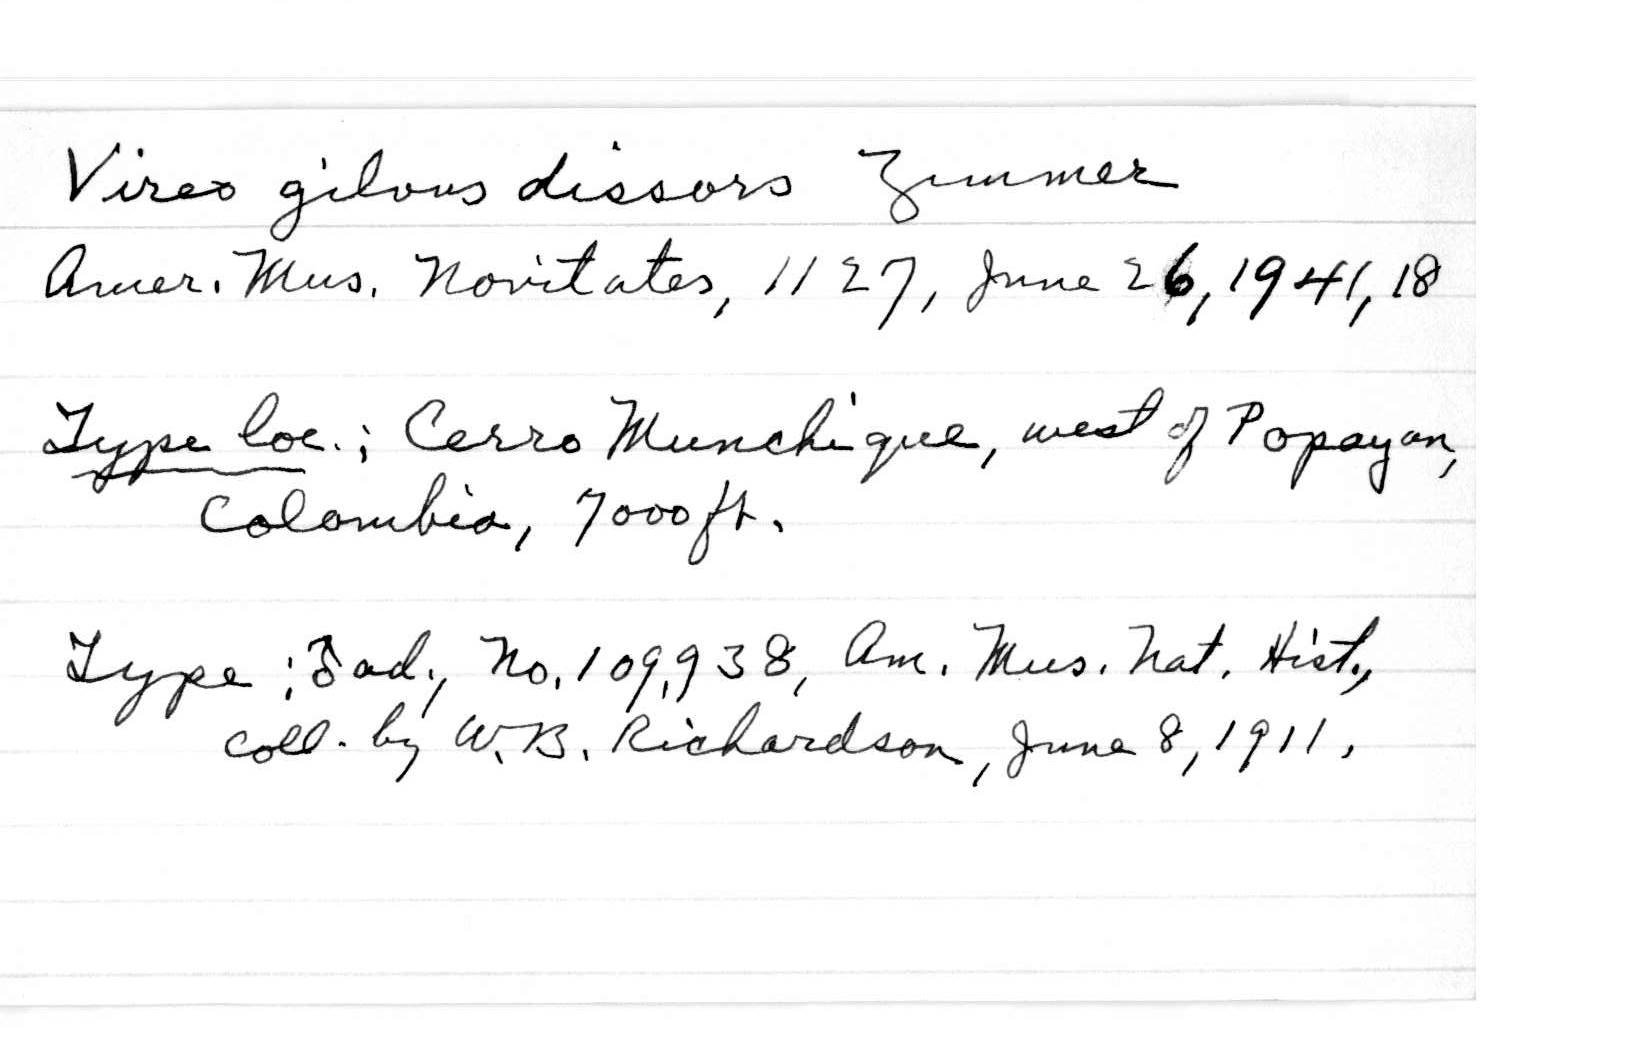 Vireo gilvus dissors Zimmer
Amer. Mus. Novitates, 1127, June 26, 1941, 18
Type loc.; Cerro Munchique, west of Popayan,
Colombia, 7000 ft.
Type: ♂ ad., No. 109,938, Am. Mus. Nat. Hist.,
coll. by W.B. Richardson, June 8, 1911.